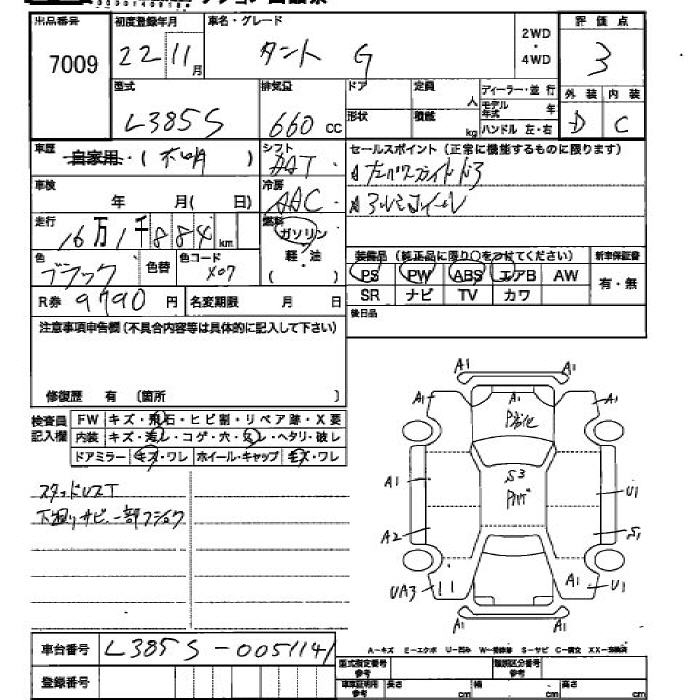 出品番号 初度登録年月 車名・グレード 2WD・4WD 評価点
7009 22 11月 タント G 3
型式 排気量 ドア 定員 人 ディーラー・並行 外装 内装
L385S 660cc 形状 積載 kg モデル年式 年 D C
ハンドル 左・右
車歴 自家用・(不明) シフト DAT セールスポイント(正常に機能するものに限ります)
車検 年 月( 日) 冷房 AAC
☆左パワースライドドア
☆アルミホイール
走行 16万1千884km 燃料 ガソリン
色 ブラック 色替 色コード X07 軽・油
( )
装備品(純正品に限り○をつけてください) 新車保証書
PS PW ABS エアB AW 有・無
SR ナビ TV カワ
R券 9790円 名変期限 月 日
後日品
注意事項申告欄(不具合内容等は具体的に記入して下さい)
修復歴 有 〔箇所 〕
検査員記入欄 FW キズ・飛石・ヒビ割・リペア跡・X要
内装 キズ・汚レ・コゲ・穴・スレ・ヘタリ・破レ
ドアミラー キズ・ワレ ホイール・キャップ キズ・ワレ
スタッドレスT
下廻りサビ、一部フショク
A1 A1
A1 A1 A1
P劣化
S3
A1 U1
A2 S1
UA3 A1 U1
A1 A1
車台番号 L385S-0051141
A-キズ E-エクボ U-凹み W-補修跡 S-サビ C-腐食 XX-交換済
登録番号
型式指定番号 参考 類別区分番号 参考
車庫証明用 参考 長さ cm 幅 cm 高さ cm